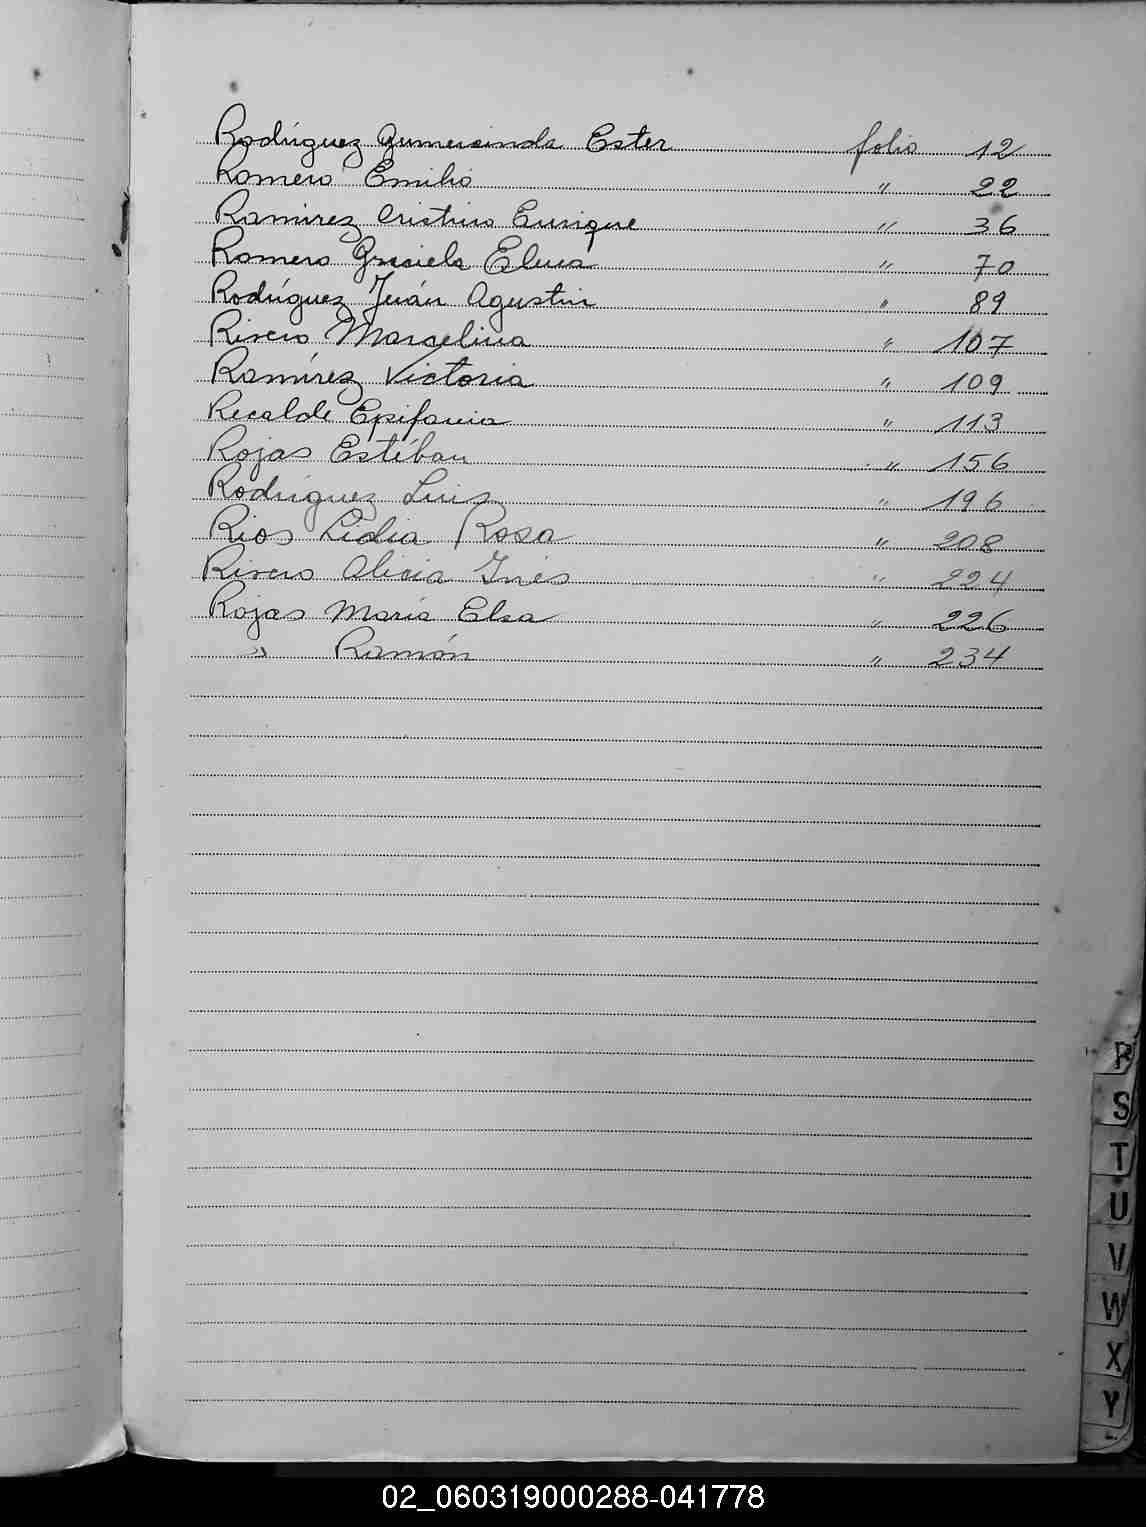 Rodríguez Gumersinda Ester folio 12
Romero Emilio " 22
Ramírez Cristino Enrique " 36
Romero Graciela Elena " 70
Rodríguez Juán Agustin " 89
Rivero Marcelina " 107
Ramírez Victoria " 109
Recalde Epifania " 113
Rojas Estéban " 156
Rodríguez Luis " 196
Rios Lidia Rosa " 208
Rivero Alicia Inés " 224
Rojas María Elsa " 226
" Ramón " 234
R
S
T
U
V
W
X
Y
02_060319000288-041778